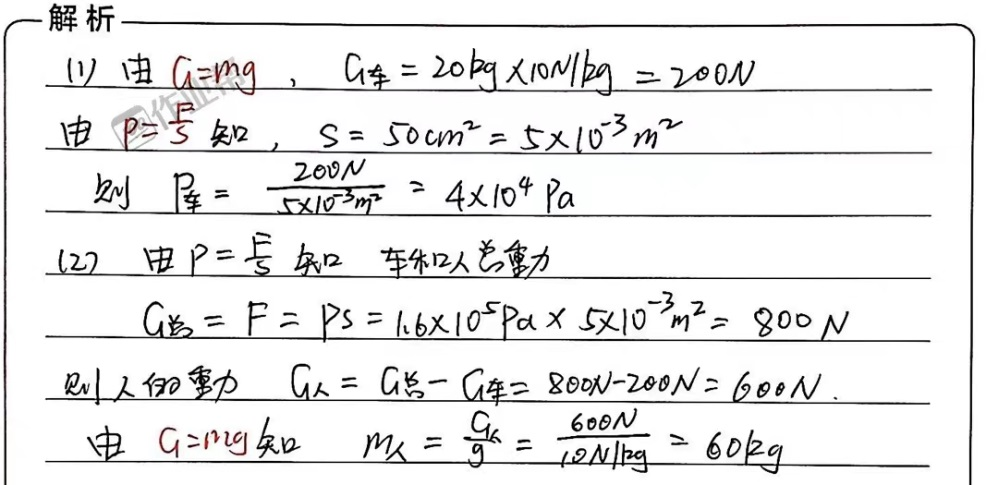 解析
(1) 由 G=mg , G车 = 20kg×10N/kg = 200N
作业帮
由 P=F/S 知 , S = 50cm² = 5×10⁻³m²
则 P车 = 200N/5×10⁻³m² = 4×10⁴ Pa
(2) 由 P=F/S 知 车和人总重力
G总 = F = PS = 1.6×10⁵Pa × 5×10⁻³m² = 800N
则人的重力 G人 = G总 - G车 = 800N-200N = 600N.
由 G=mg 知 m人 = G人/g = 600N/10N/kg = 60kg